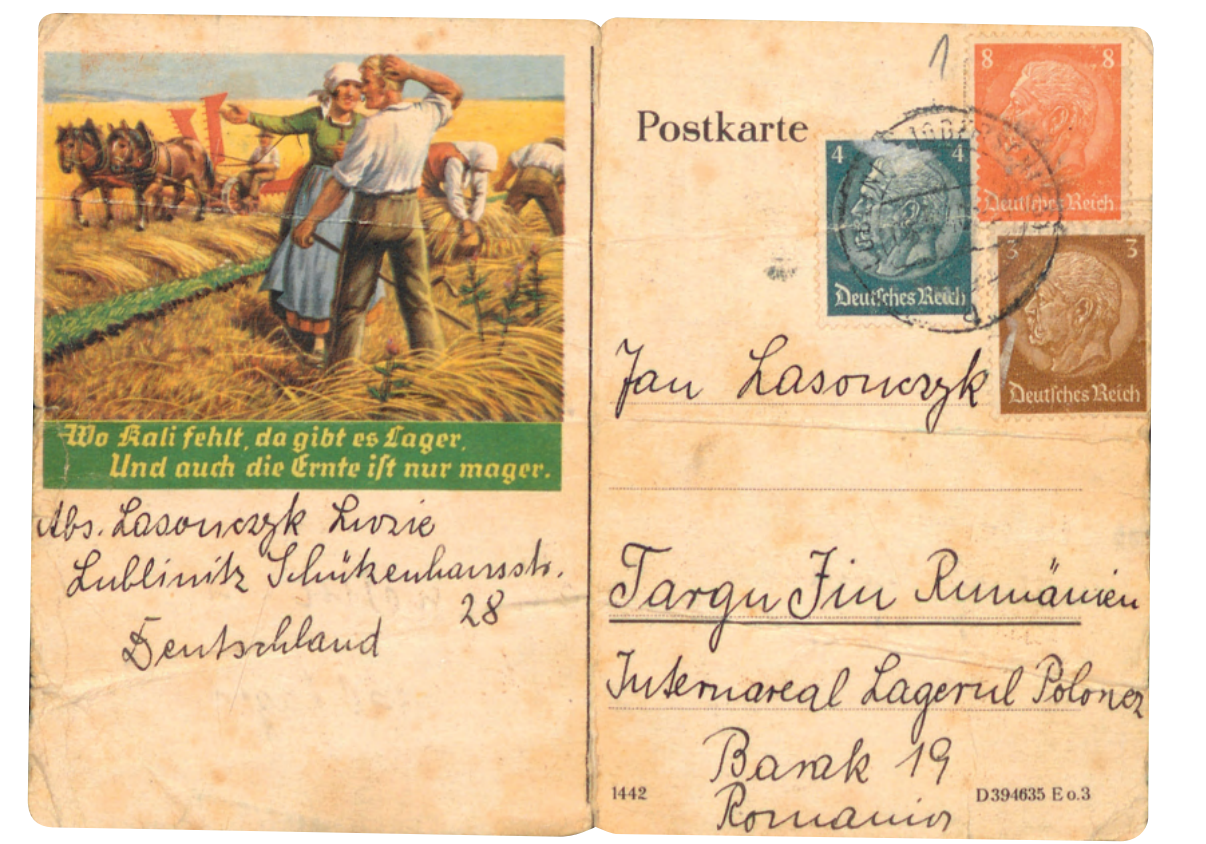 Wo Kali fehlt, da gibt es Lager,
Und auch die Ernte ist nur mager.
Abs. Lasonczyk Luzie
Lublinitz Schützenhausstr.
28
Deutschland
1
Postkarte
8 8
Deutsches Reich
4 4
Deutsches Reich
3 3
Deutsches Reich
Jan Lasonczyk
Targu Jiu Rumänien
Internareal Lagerul Polonez
Barak 19
Romania
1442
D 394635 E o. 3